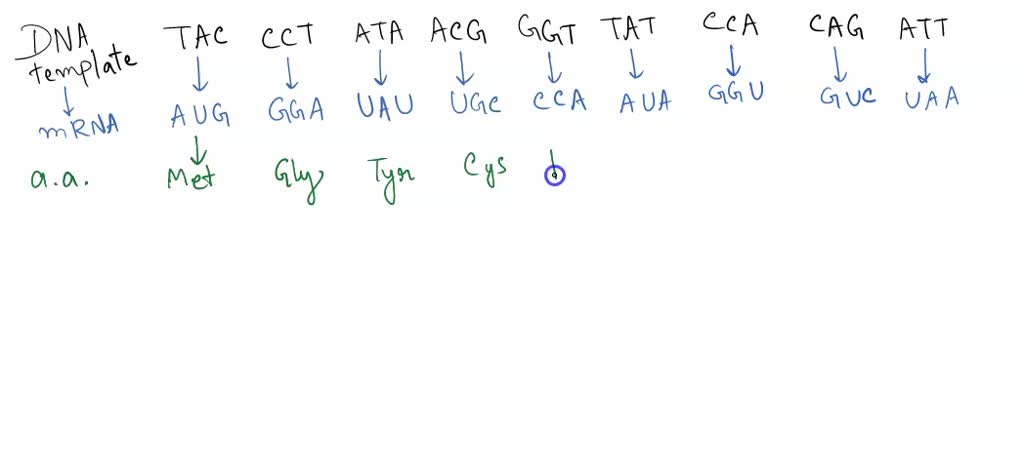 DNA template TAC CCT ATA ACG GGT TAT CCA CAG ATT
mRNA AUG GGA UAU UGC CCA AUA GGU GUC UAA
a.a. Met Gly Tyr Cys